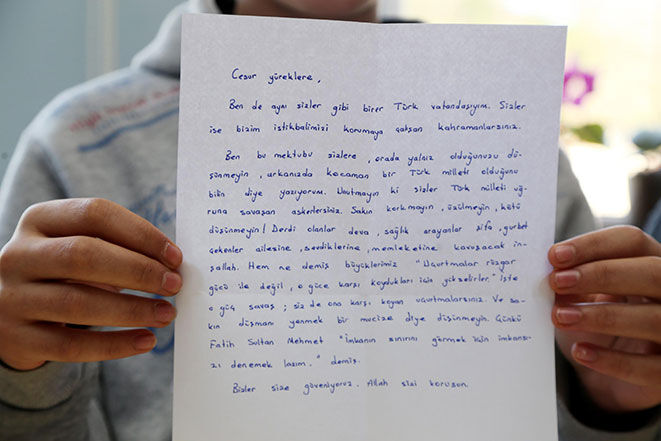 Cesur yüreklere,
Ben de aynı sizler gibi birer Türk vatandaşıyım. Sizler
ise bizim istikbalimizi korumaya çalışan kahramanlarsınız.
Ben bu mektubu sizlere, orada yalnız olduğunuzu dü-
şünmeyin, arkanızda kocaman bir Türk milleti olduğunu
bilin diye yazıyorum. Unutmayın ki sizler Türk milleti uğ-
runa savaşan askerlersiniz. Sakın korkmayın, üzülmeyin, kötü
düşünmeyin! Derdi olanlar deva, sağlık arayanlar şifa, gurbet
çekenler ailesine, sevdiklerine, memleketine kavuşacak in-
şallah. Hem ne demiş büyüklerimiz "Uçurtmalar rüzgar
gücü ile değil, o güce karşı koydukları için yükselirler." İşte
o güç savaş; siz de ona karşı koyan uçurtmalarsınız. Ve sa-
kın düşmanı yenmek bir mucize diye düşünmeyin. Çünkü
Fatih Sultan Mehmet "İmkanın sınırını görmek için imkansı-
zı denemek lazım." demiş.
Bizler size güveniyoruz. Allah sizi korusun.